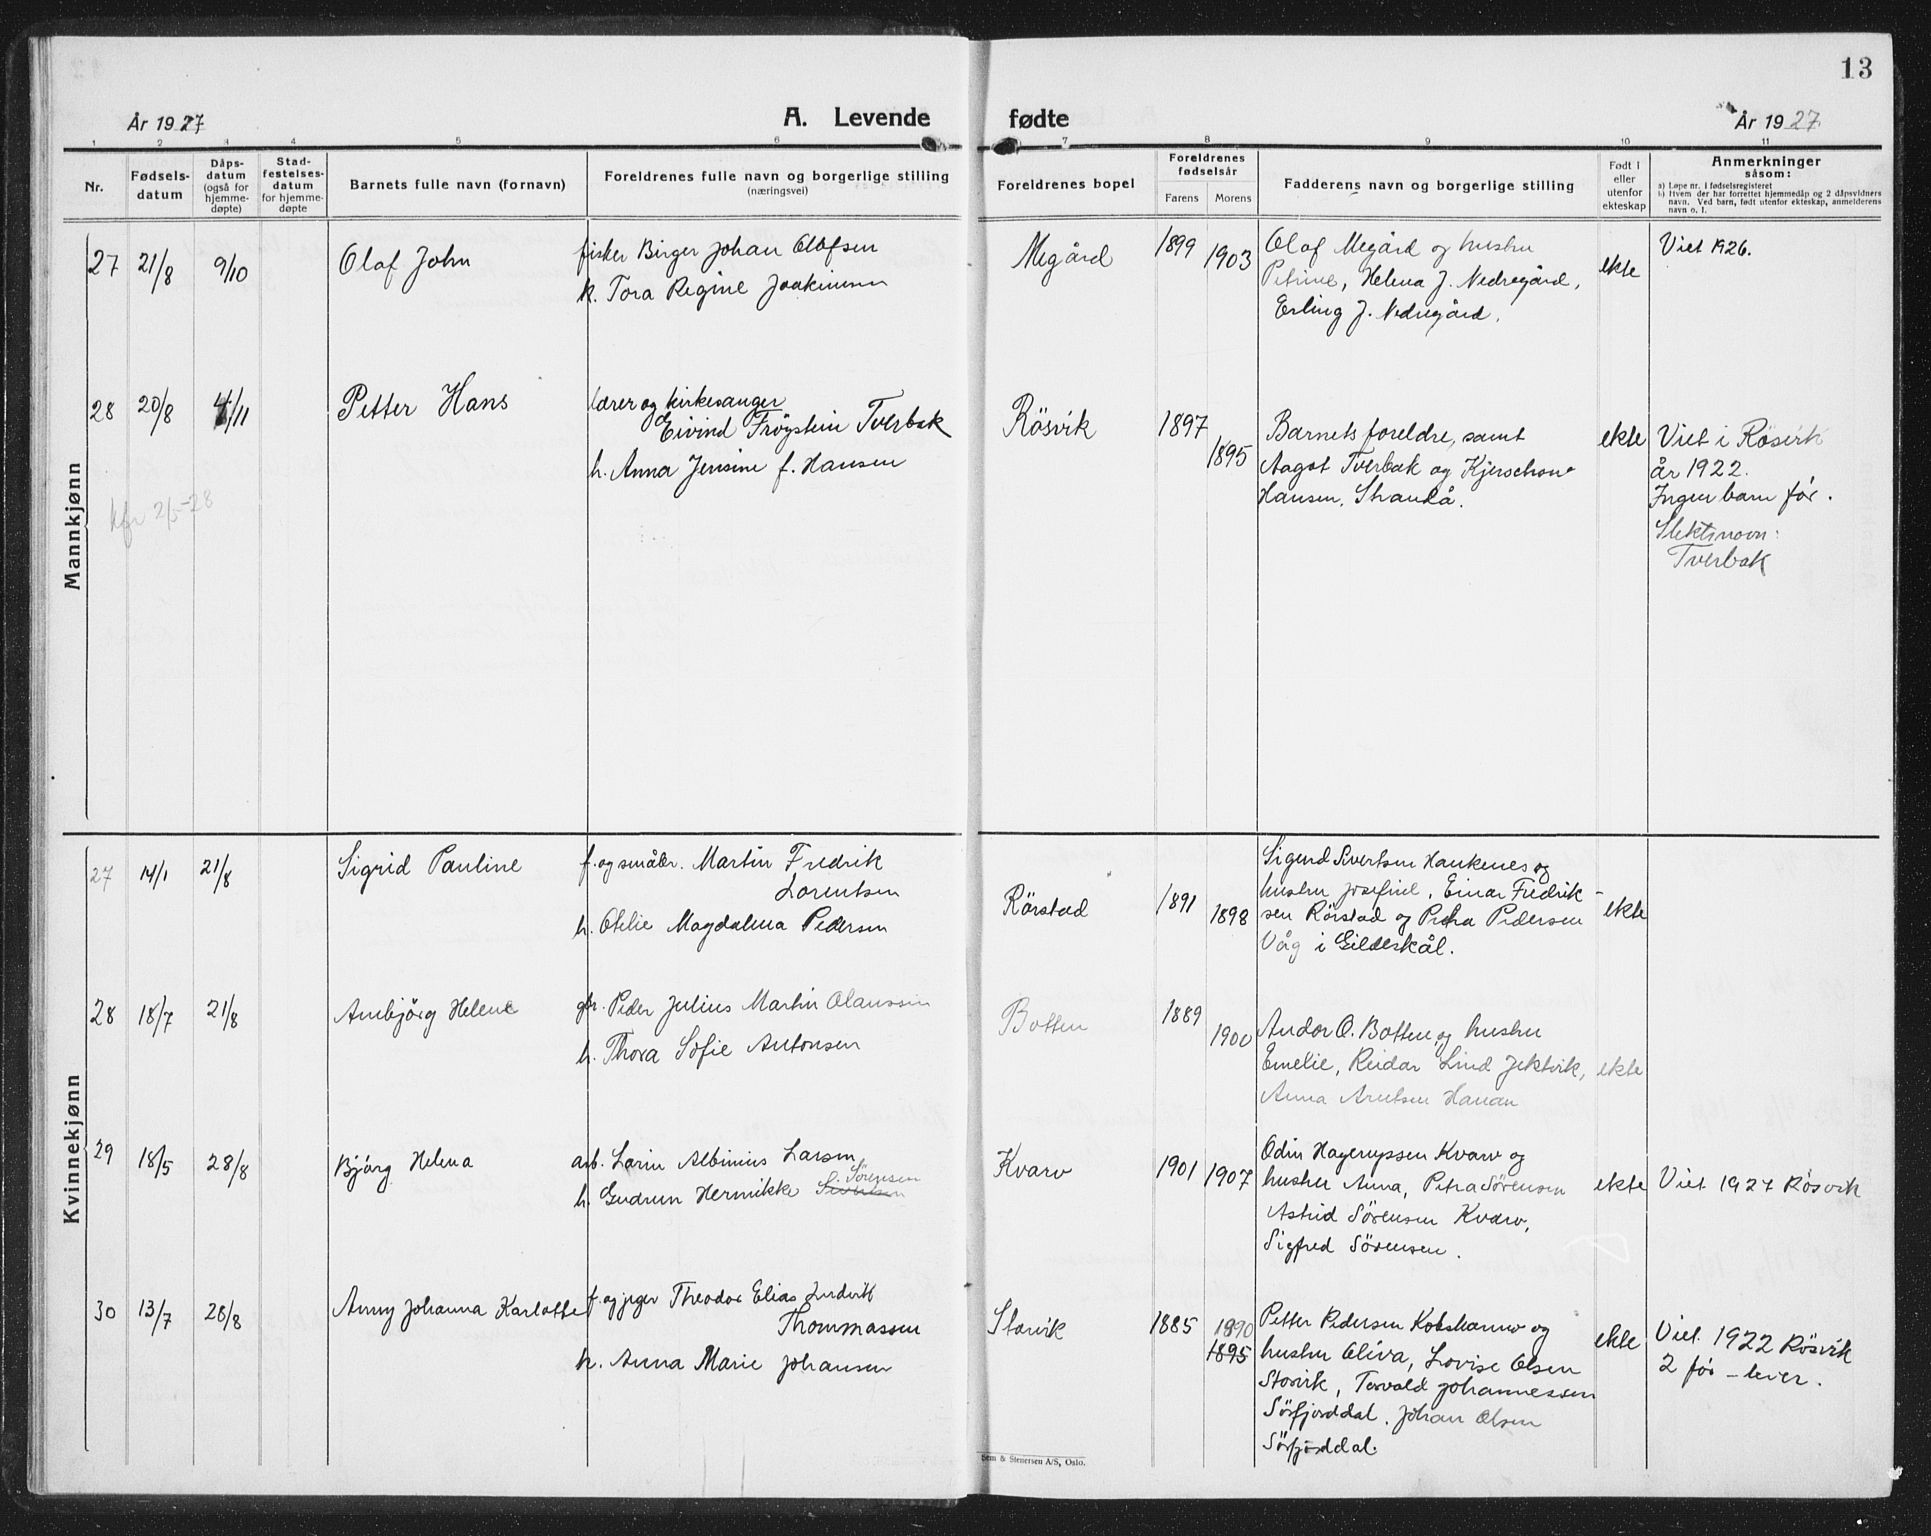 13
År 1927
A. Levende fødte
År 1927
1 2 3 4 5 6 7 8 9 10 11
Nr.
Fødsels-
datum
Dåps-
datum
(også for
hjemme-
døpte)
Stad-
festelses-
datum
for hjemme-
døpte
Barnets fulle navn (fornavn)
Foreldrenes fulle navn og borgerlige stilling
(næringsvei)
Foreldrenes bopel
Foreldrenes
fødselsår
Farens Morens
Fadderens navn og borgerlige stilling
Født i
eller
utenfor
ekteskap
Anmerkninger
såsom:
a) Løpe nr. i fødselsregisteret
b) Hvem der har forrettet hjemmedåp og 2 dåpsvidners
navn. Ved barn, født utenfor ekteskap, anmelderens
navn o. l.
Mannkjønn
27 21/8 9/10 Olaf John
fisker Birger Johan Olofsen
h. Tora Regine Joakimsen
Megård
1899 1903
Olaf Megård og hustru
Petrine, Helena J. Nedregård,
Erling J. Nedregård.
ekte
Viet 1926.
28 20/8 4/11 Petter Hans
lærer og kirkesanger
Eivind Frøystein Tverbak
h. Anna Jensine f. Hansen
Rösvik
1897 1895
Barnets foreldre, samt
Aagot Tverbak og Kjerschow
Hansen, Strandå.
ekte
Viet i Røsvik
år 1922.
Ingen barn før.
Slektsnavn:
Tverbak
kfr 2/5-28
Kvinnekjønn
27 14/1 21/8 Sigrid Pauline
f. og småbr. Martin Fredrik
Lorentsen
h. Otelie Magdalena Pedersen
Rörstad
1891 1898
Sigurd Sivertsen Haukenes og
hustru Josefine, Einar Fredrik-
sen Rörstad og Petra Pedersen
Våg i Gildeskål.
ekte
28 18/7 21/8 Annbjörg Helene
gbr. Peder Julius Martin Olaussen
h. Thora Sofie Antonsen
Botten
1889 1900
Andor O. Botten og hustru
Emelie, Reidar Lind Jektvik,
Anna Arntsen Hanan
ekte
29 18/5 28/8 Björg Helena
arb. Lorin Albinius Larsen
h. Gudrun Hermikke Sörensen
Kvarv
1901 1907
Odin Hageruppsen Kvarv og
hustru Anna, Petra Sørensen
Astrid Sørensen Kvarv,
Sigfred Sörensen.
ekte
Viet 1927 Røsvik
30 13/7 28/8 Anny Johanna Karlotte
f. og jeger Theodor Elias Ludvik
Thommassen
h. Anna Marie Johansen
Storvik
1885 1890
1895
Petter Pedersen Kobskarv og
hustru Oliva, Lovise Olsen
Storvik, Torvald Johannessen
Sörfjorddal, Johan Olsen
Sörfjorddal.
ekte
Viet 1922 Røsvik
2 før – lever.
Sem & Stenersen A/S, Oslo.